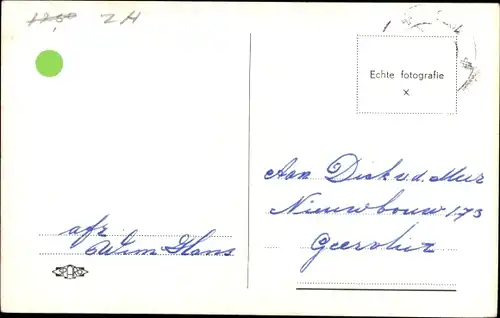 ZH
Echte fotografie
x
Aan Dick v.d. Meer
Nieuwbouw 173
Geervliet
afz
Wim Hans